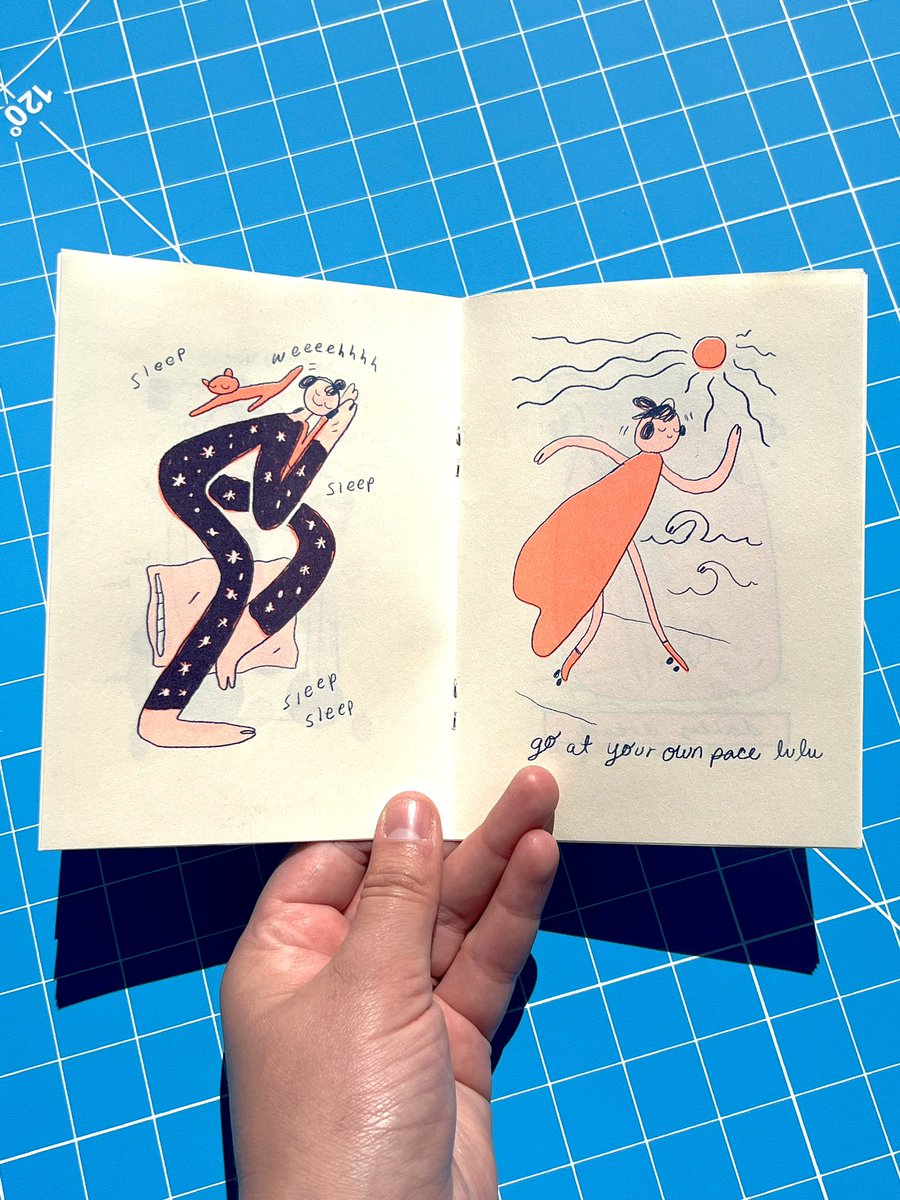 120°
sleep
weeeehhhh
sleep
sleep
sleep
go at your own pace lulu